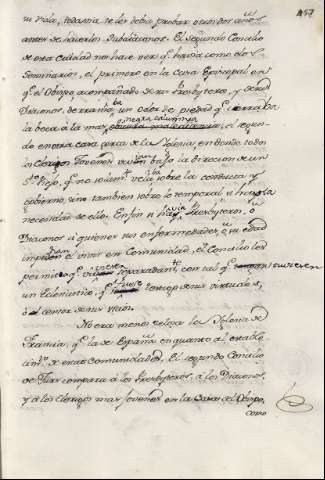 457
su vida, todavia se les debia probar otros dos años
antes de hacerlos Subdiaconos. El segundo Concilio
de esta Ciudad nos hace ver qe. havia como dos
Seminarios, el primero en la Casa Episcopal en
qe. el Obispo acompañado de sus Presbyteros, y de sus
Diaconos, derramaba un olor de piedad qe. cerraba
la boca a la mas negra calumnia, el segun-
do en otra casa cerca de la Iglesia, en donde todos
los Clerigos Jovenes vivian bajo la direccion de un
Sto. Viejo, qe. no solamte. velaba sobre la conducta y
gobierno, sino tambien sobre lo temporal, y
necesidad de ellos. En fin si havia Presbyteros, ò
Diaconos à quienes sus enfermedades, ò su edad
impedian el vivir en Comunidad, el Concilio les
permite qe. viviesen separadamte. con tal qe. tuviesen
un Eclesiastico, qe. fuese testigo de sus virtudes,
ò el censor de sus vicios.
No era menos celosa la Iglesia de
Francia, qe. la de España en quanto al estable-
cimto. de estas Comunidades. El segundo Concilio
de Turs compara à los Presbyteros, à los Diaconos,
y à los Clerigos mas Jovenes en la Casa del Obispo,
como